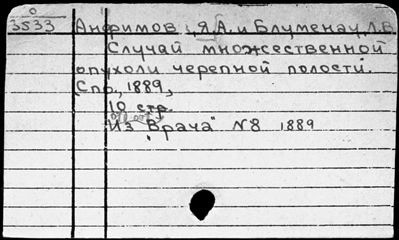 0
3533 Анфимов, Я.А. и Блуменау, Л.В.
Случай множественной
опухоли черепной полости.
Спб., 1889,
10 стр.
Из "Врача" N8 1889